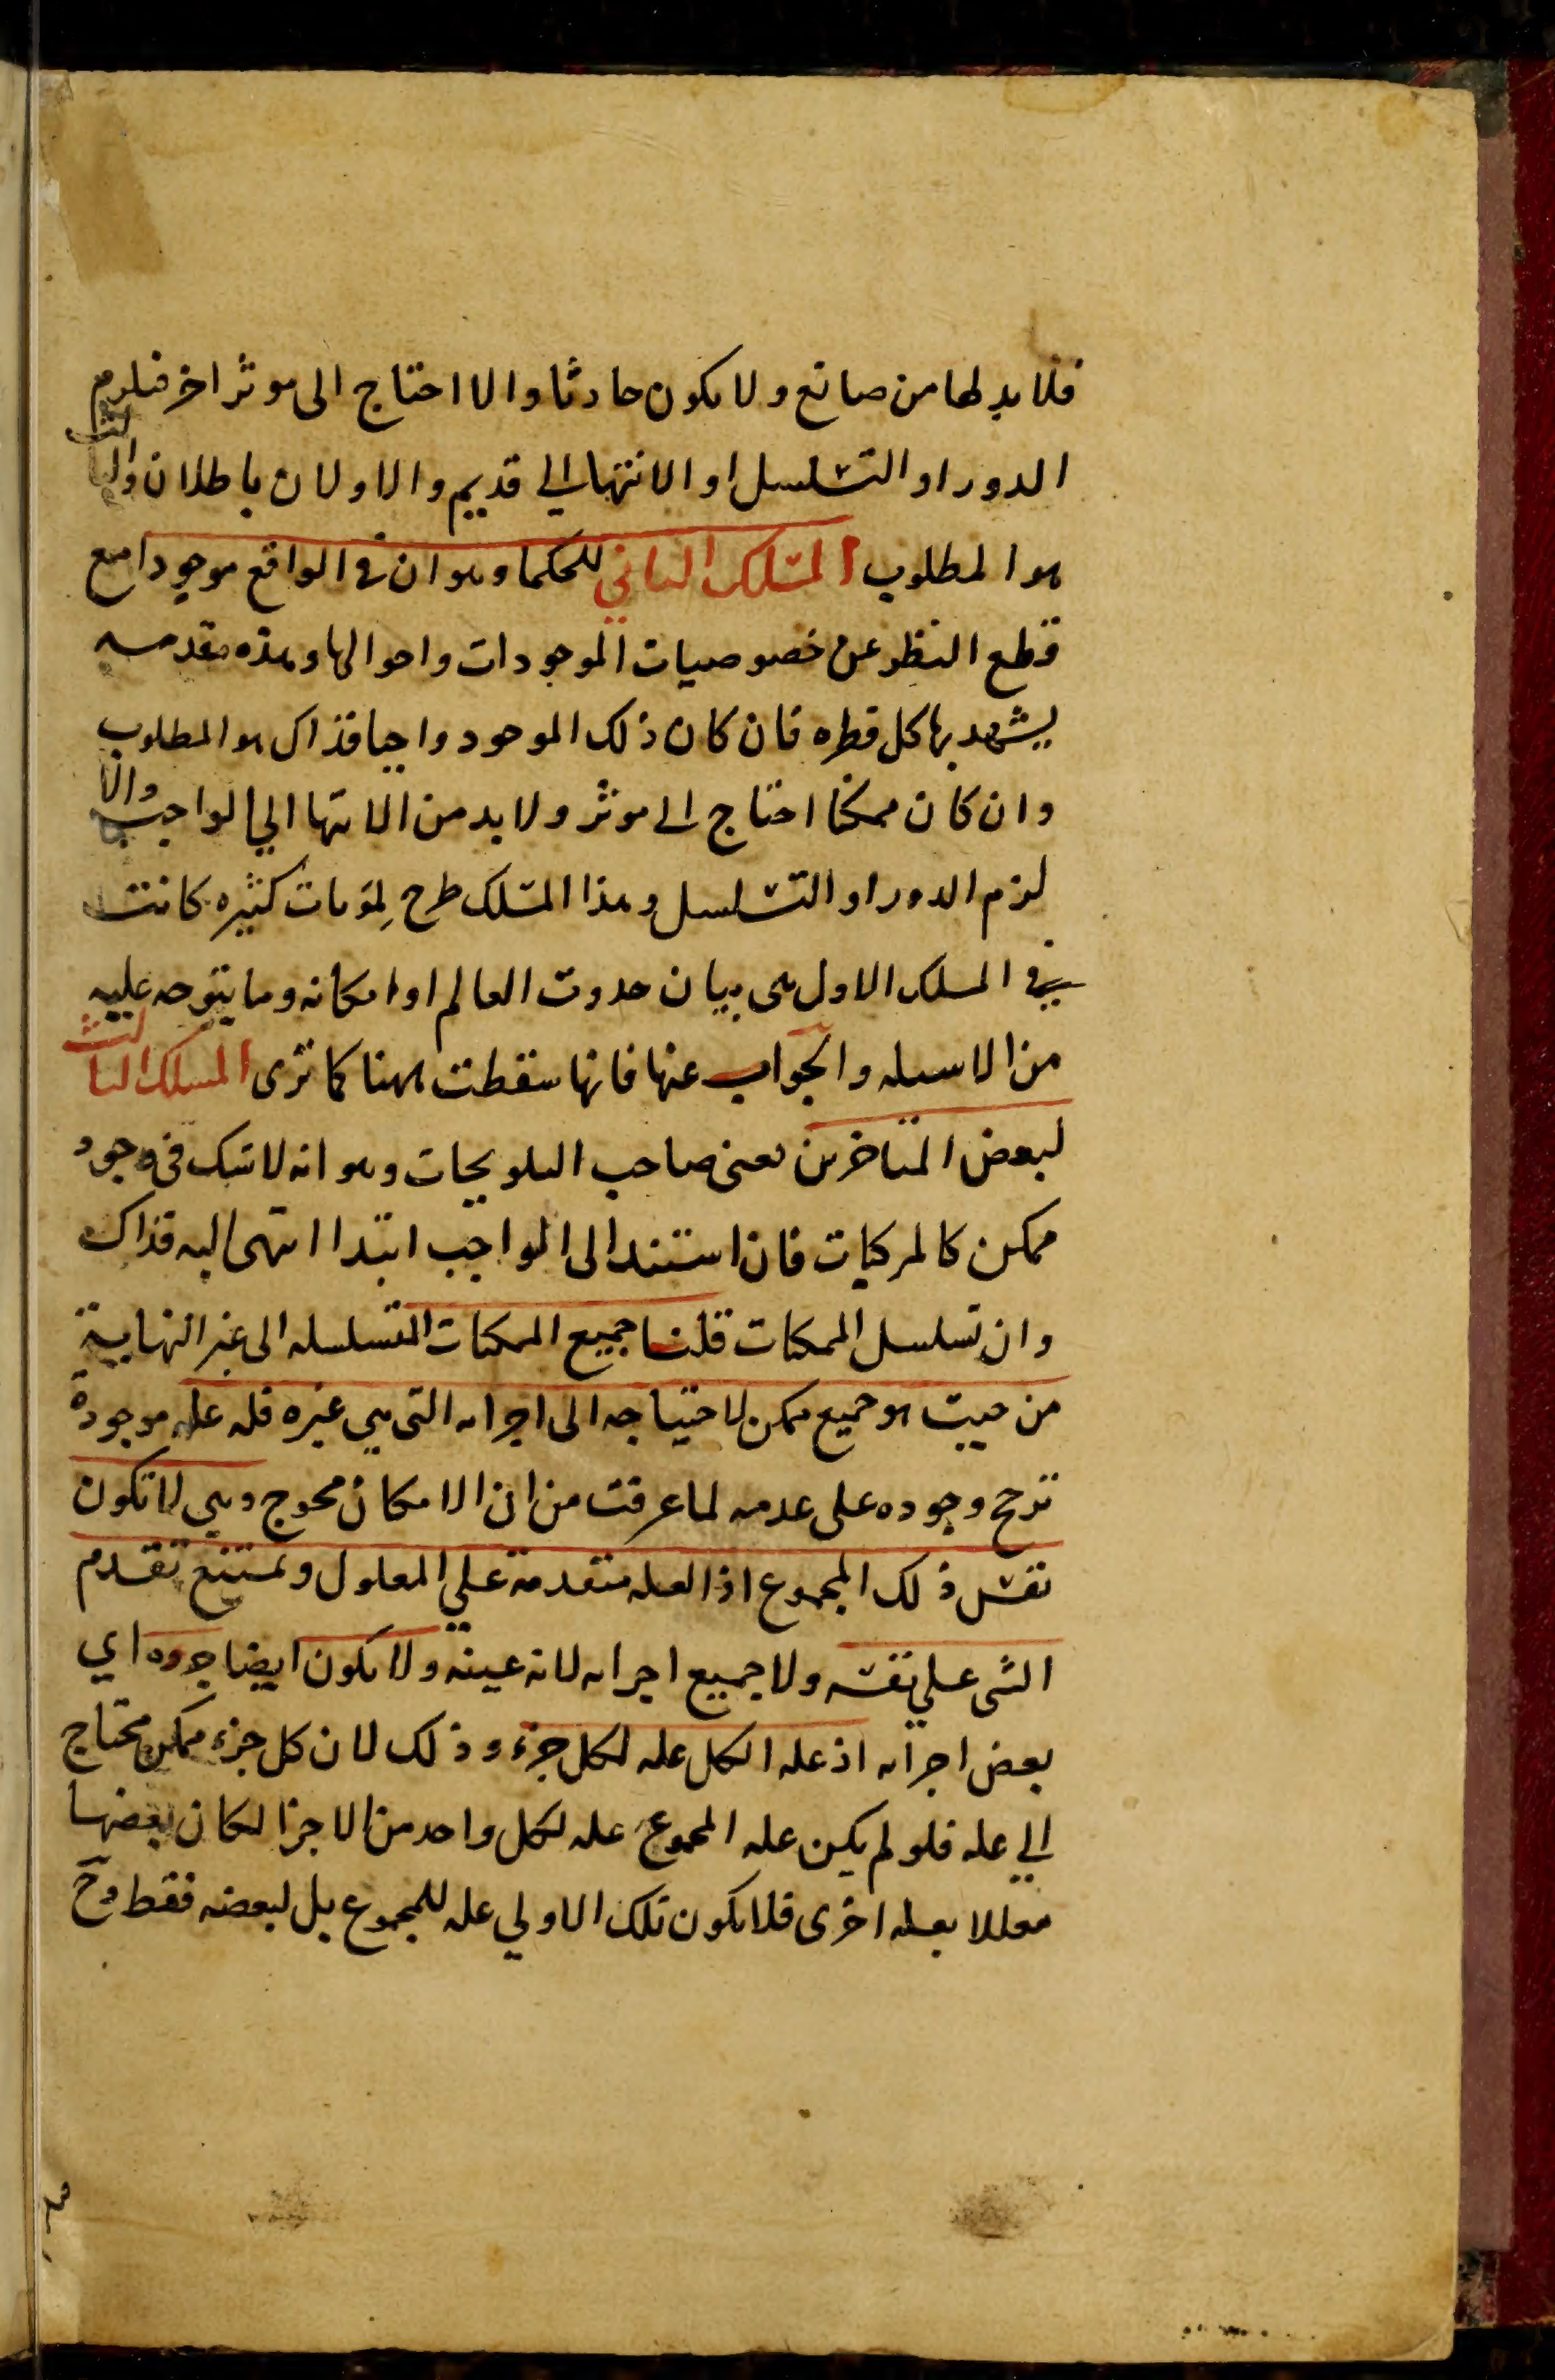 فلا بد لها من صانع ولا يكون حادثا والا احتاج الى موثر اخر فيلزم
الدور او التسلسل او الانتها الي قديم والاولان باطلان والثالث
هو المطلوب المسلك الثاني للحكما وهو ان في الواقع موجودا مع
قطع النظر عن خصوصيات الموجودات واحوالها وهذه مقدمه
يشهد بها كل فطره فان كان ذلك الموجود واجبا فذاك هو المطلوب
وان كان ممكنا احتاج الى موثر ولا بد من الانتها الي الواجب والا
لزم الدور او التسلسل وهذا المسلك طرح لمؤنات كثيره كانت
في المسلك الاول هى بيان حدوث العالم او امكانه وما يتوجه عليه
من الاسيله والجواب عنها فانها سقطت ههنا كما ترى المسلك الثالث
لبعض المتاخرين يعنى صاحب التلويحات وهو انه لا شك فى وجود
ممكن كالمركبات فان استند الى الواجب ابتدا انتهى اليه فذاك
وان تسلسل الممكنات قلنا جميع الممكنات المتسلسله الى غير النهاية
من حيث هو جميع ممكن لاحتياجه الى اجزايه التى هي غيره فله عله موجودة
ترجح وجوده على عدمه لما عرفت من ان الامكان محوج وهي لا تكون
نفس ذلك المجموع اذ العله متقدمة علي المعلول ويمتنع تقدم
الشى علي نفسه ولا جميع اجزايه لانه عينه ولا يكون ايضا جزوه اي
بعض اجزايه اذ عله الكل عله لكل جزء وذلك لان كل جزء ممكن محتاج
الي عله فلو لم يكن عله المجموع عله لكل واحد من الاجزا لكان بعضها
معللا بعله اخرى فلا يكون تلك الاولي عله للمجموع بل لبعضه فقط وح